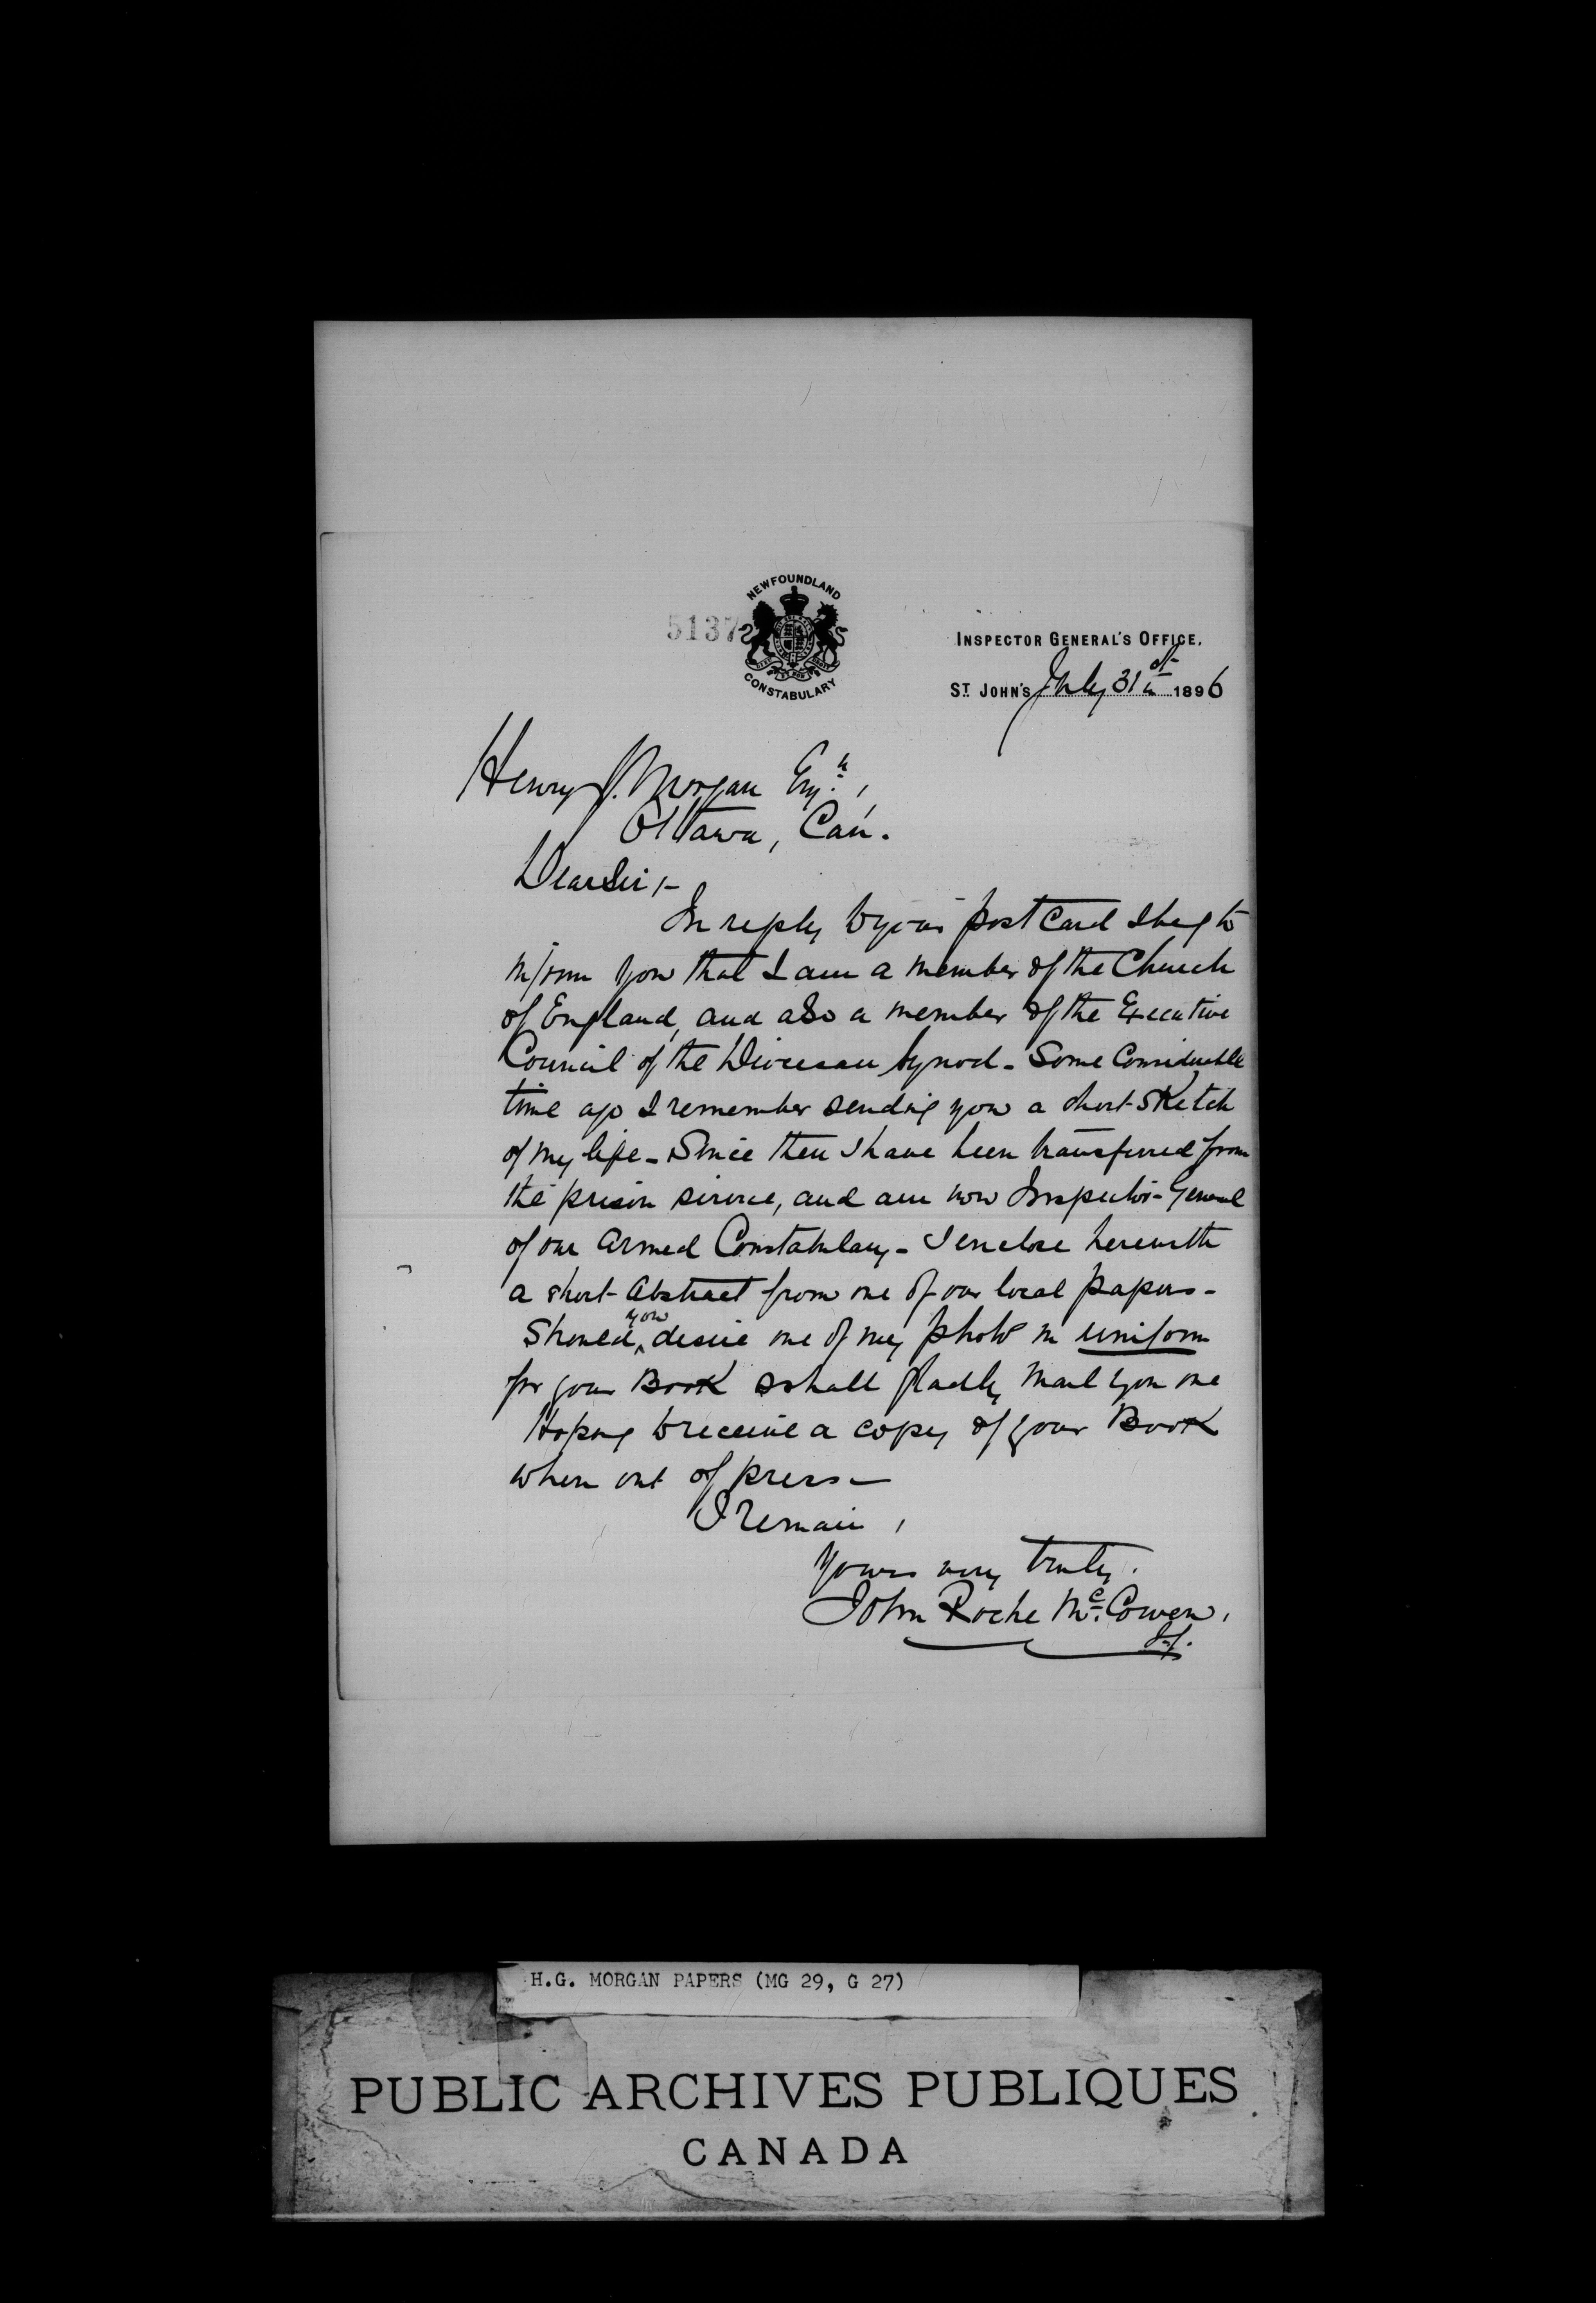 5137
NEWFOUNDLAND
CONSTABULARY
INSPECTOR GENERAL'S OFFICE.
ST. JOHN'S July 31st 1896
Henry J. Morgan Esqr.,
Ottawa, Can.
Dear Sir,-
In reply to your post Card I beg to
inform you that I am a member of the Church
of England, and also a member of the Executive
Council of the Diocesan Synod - Some Considerable
time ago I remember sending you a short sketch
of my life - Since then I have been transferred from
the prison service, and am now Inspector-General
of our Armed Constabulary - I enclose herewith
a short Abstract from one of our local papers -
Should you desire one of my photos in uniform
for your Book I shall gladly mail you one
Hoping to receive a copy of your Book
when out of press -
I remain,
Yours very truly.
John Roche McCowen,
I.G.
H.G. MORGAN PAPERS (MG 29, G 27)
PUBLIC ARCHIVES PUBLIQUES
CANADA